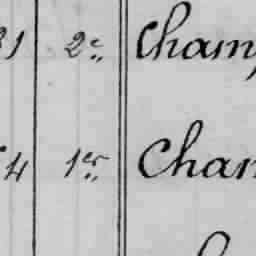 1 2e Champ
4 1er Cham